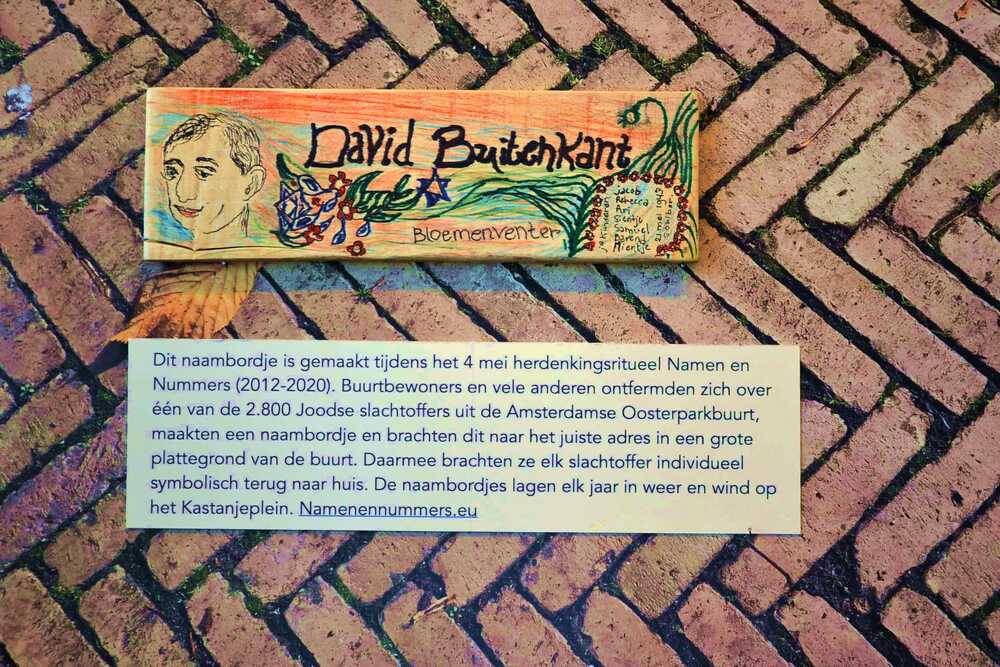 David Buitenkant
Bloemenventer
Jacob
Rebecca
Ari
Sientje
Samuel
Barend
Mientje
21 mei 1943
Sobibor
Dit naambordje is gemaakt tijdens het 4 mei herdenkingsritueel Namen en
Nummers (2012-2020). Buurtbewoners en vele anderen ontfermden zich over
één van de 2.800 Joodse slachtoffers uit de Amsterdamse Oosterparkbuurt,
maakten een naambordje en brachten dit naar het juiste adres in een grote
plattegrond van de buurt. Daarmee brachten ze elk slachtoffer individueel
symbolisch terug naar huis. De naambordjes lagen elk jaar in weer en wind op
het Kastanjeplein. Namenennummers.eu